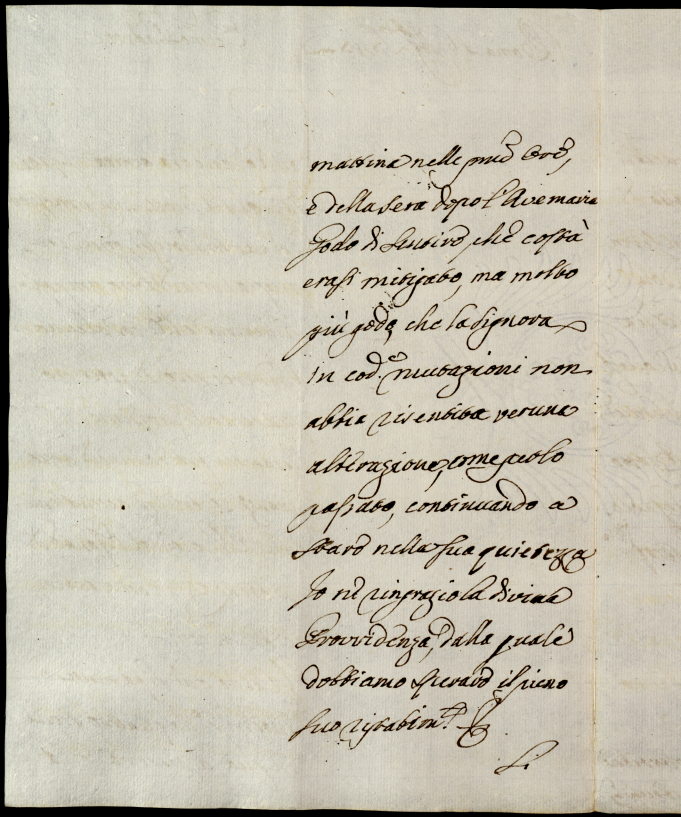 mattina nelle pme Ore,
e della sera dopo l'Avemaria
Godo di sentire, che costà
erasi mitigato, ma molto
più godo, che la Signora
in cod.e mutazioni non
abbia risentita veruna
alterazione, come
passato, continuando a
stare nella sua quietezza
Io ne ringrazio la divina
Provvidenza, dalla quale
dobbiamo sperare il pieno
suo ristabim.to
Li